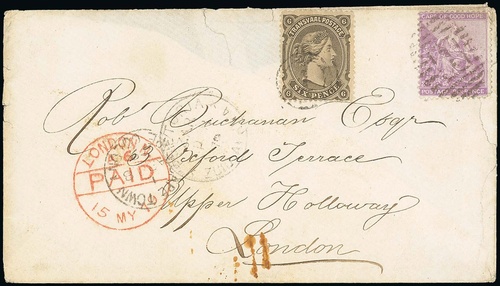 TRANSVAAL POSTAGE
6 6
SIX PENCE
CAPE OF GOOD HOPE
POSTAGE PENCE
Robt Buchanan Esqr
Oxford Terrace
Upper Holloway
London
LONDON
PAID
15 MY